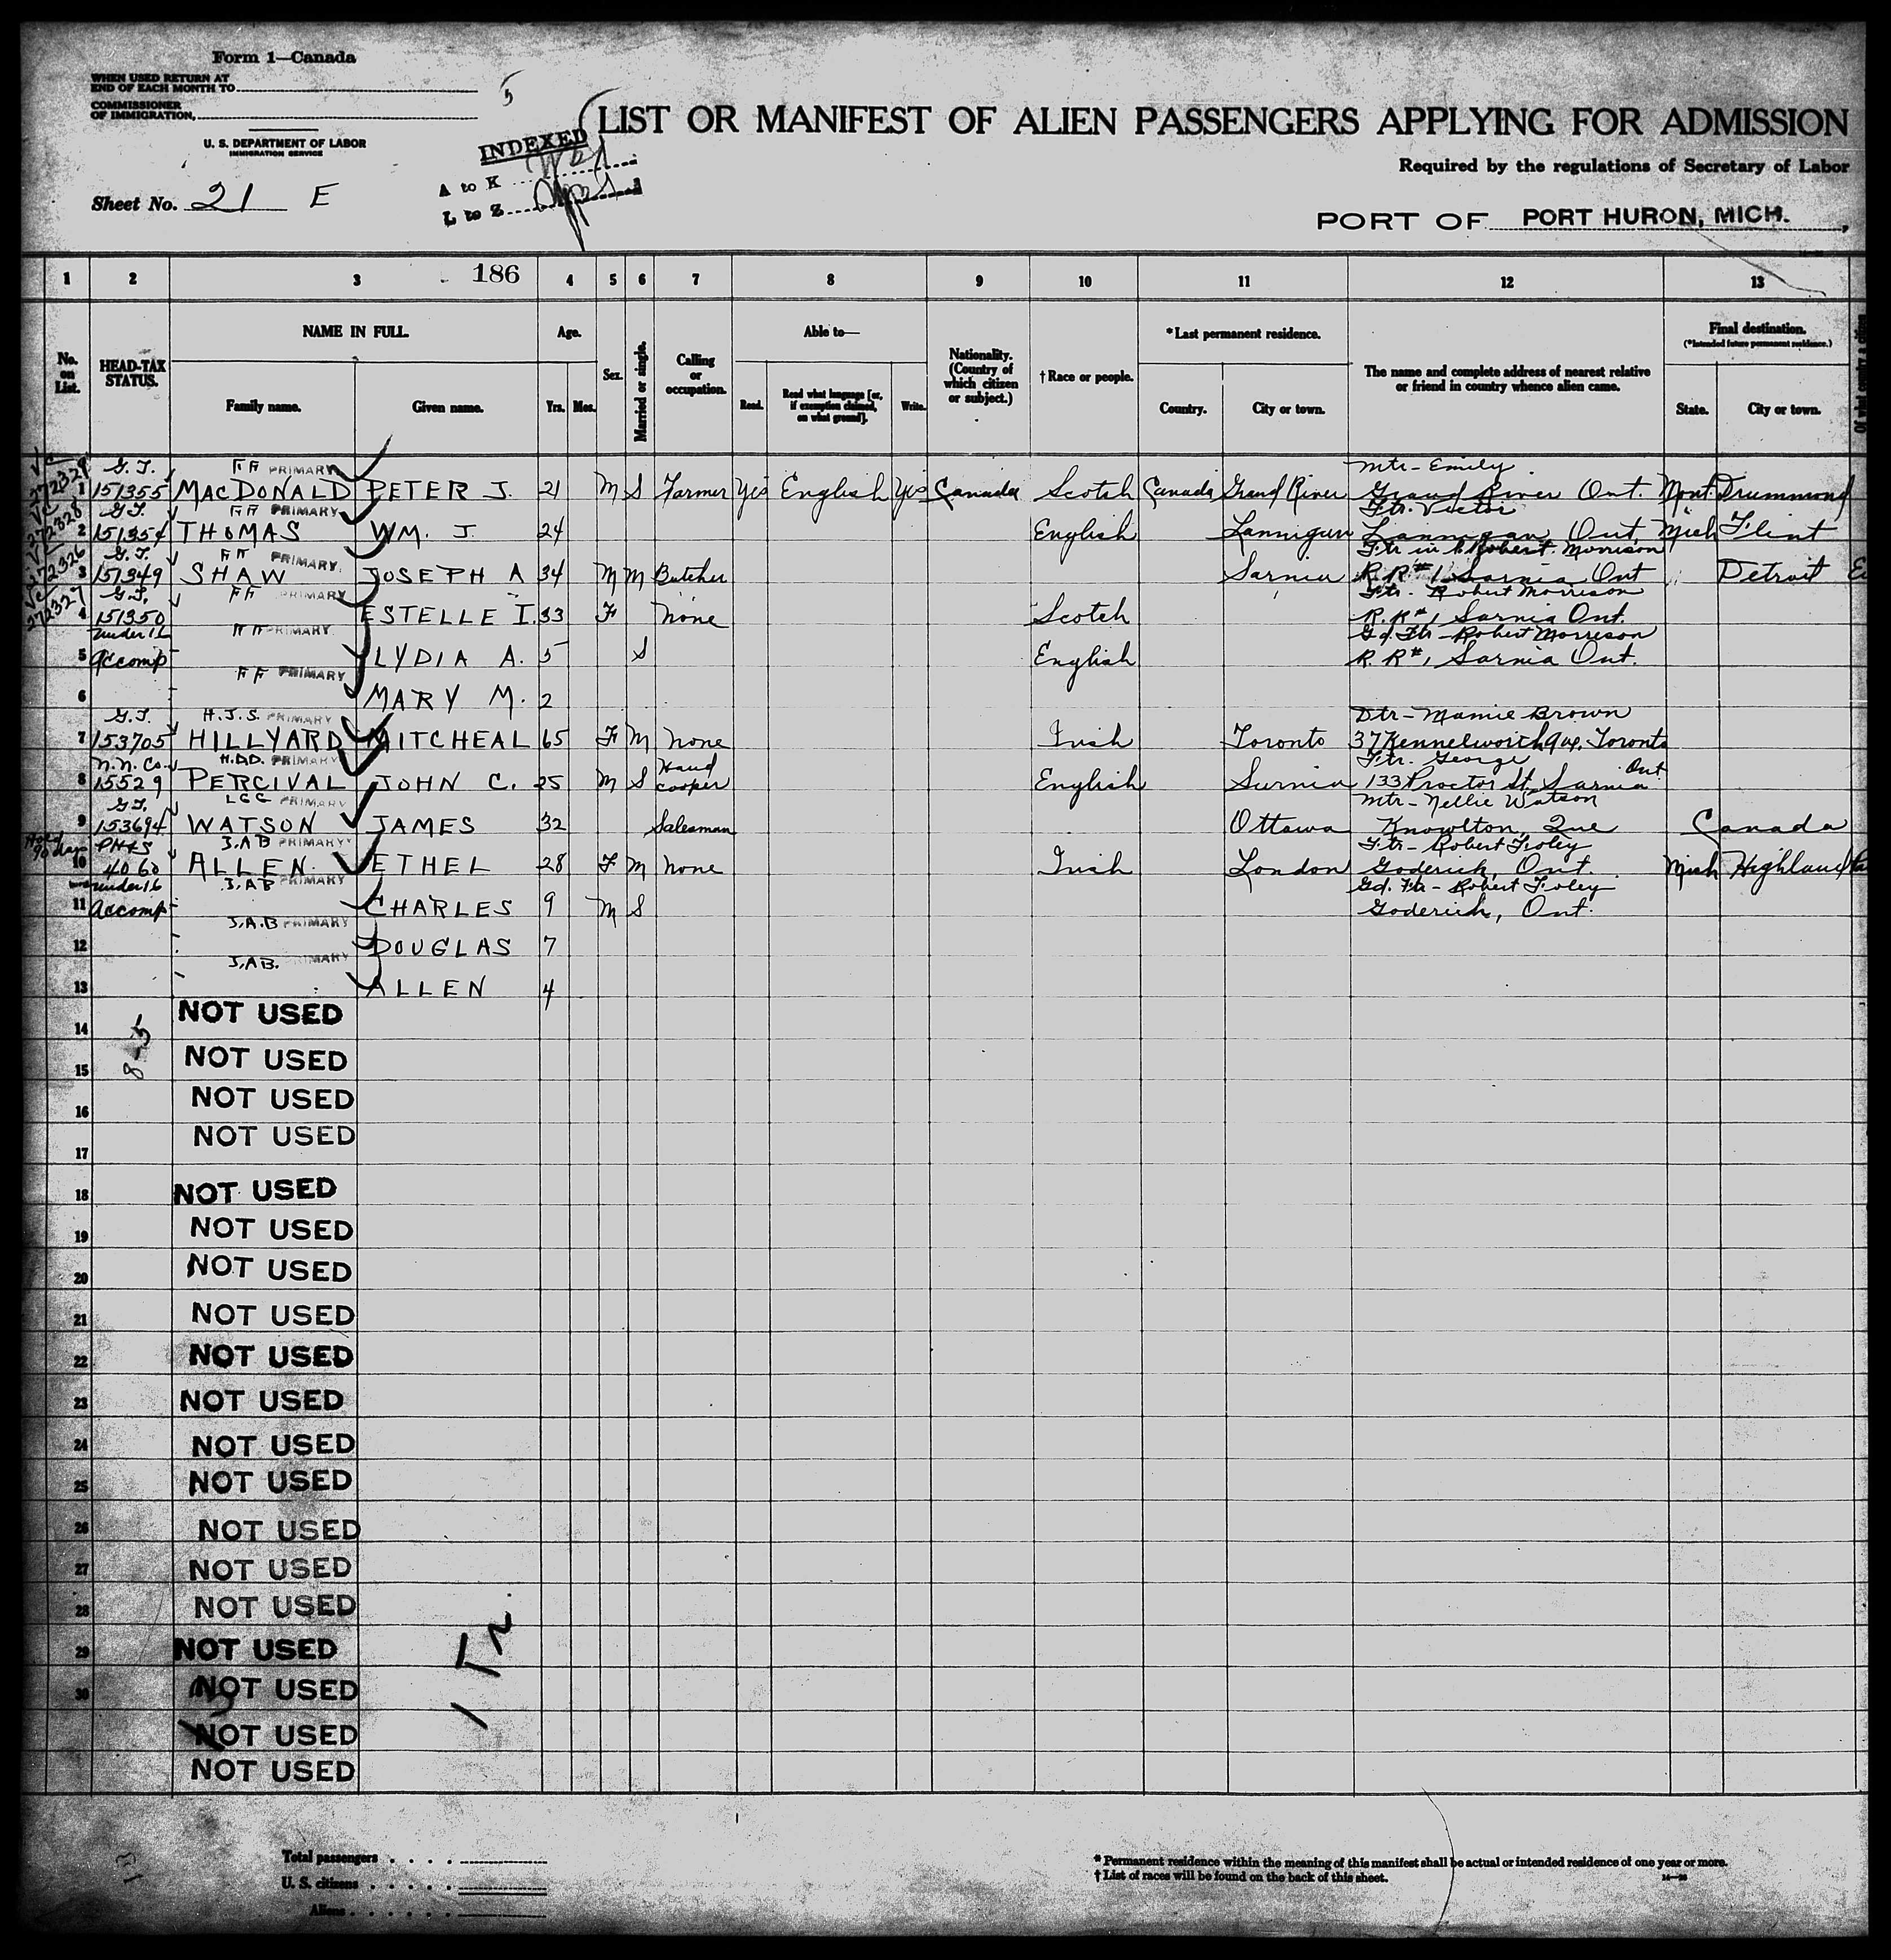 Form 1—Canada
WHEN USED RETURN AT
END OF EACH MONTH TO
COMMISSIONER
OF IMMIGRATION,
U. S. DEPARTMENT OF LABOR
IMMIGRATION SERVICE
Sheet No. 21 E
INDEXED
A to K
L to Z
LIST OR MANIFEST OF ALIEN PASSENGERS APPLYING FOR ADMISSION
Required by the regulations of Secretary of Labor
PORT OF PORT HURON, MICH.,
1 2 3 186 4 5 6 7 8 9 10 11 12 13
No. on List.
HEAD-TAX STATUS.
NAME IN FULL.
Family name. Given name.
Age.
Yrs. Mos.
Sex.
Married or single.
Calling or occupation.
Able to—
Read. Read what language [or, if exemption claimed, on what ground]. Write.
Nationality. (Country of which citizen or subject.)
† Race or people.
*Last permanent residence.
Country. City or town.
The name and complete address of nearest relative or friend in country whence alien came.
Final destination.
(*Intended future permanent residence.)
State. City or town.
272329 G.T. FF PRIMARY Mtr- Emily
1 151355 MACDONALD PETER J. 21 M S Farmer Yes English Yes Canada Scotch Canada Grand River Grand River Ont. Mont. Drummond
272328 G.T. FF PRIMARY Ftr. Victor
2 151354 THOMAS WM. J. 24 English Lannigan Lannigan Ont. Mich Flint
272326 G.T. FF PRIMARY Ftr in L Robert Morrison
3 151349 SHAW JOSEPH A 34 M M Butcher Sarnia R.R #1 Sarnia Ont Detroit
272327 G.T. FF PRIMARY Ftr. Robert Morrison
4 151350 ESTELLE I. 33 F None Scotch R.R #1 Sarnia Ont.
under 16 FF PRIMARY Gd. Ftr - Robert Morrison
5 accomp LYDIA A. 5 S English R.R #1 Sarnia Ont.
FF PRIMARY
6 MARY M. 2
G.T. H.J.S. PRIMARY Dtr - Mamie Brown
7 153705 HILLYARD MITCHEAL 65 F M None Irish Toronto 37 Kennelworth Ave. Toronto
N.N. Co. H.D.D. PRIMARY Hand Ftr. George Ont
8 15529 PERCIVAL JOHN C. 25 M S cooper English Sarnia 133 Proctor St. Sarnia
G.T. LCG PRIMARY Mtr - Nellie Watson
9 153694 WATSON JAMES 32 Salesman Ottawa Knowlton, Que Canada
90 days J.A.B PRIMARY Ftr - Robert Froley
10 4060 ALLEN ETHEL 28 F M None Irish London Goderich, Ont. Mich Highland
under 16 J.AB PRIMARY Gd. Ftr - Robert Froley
11 accomp CHARLES 9 M S Goderich, Ont.
J.A.B PRIMARY
12 DOUGLAS 7
J.AB. PRIMARY
13 ALLEN 4
14 NOT USED
8-5
15 NOT USED
16 NOT USED
17 NOT USED
18 NOT USED
19 NOT USED
20 NOT USED
21 NOT USED
22 NOT USED
23 NOT USED
24 NOT USED
25 NOT USED
26 NOT USED
27 NOT USED
28 NOT USED
29 NOT USED
30 NOT USED
NOT USED
NOT USED
Total passengers
U. S. citizens
Aliens
* Permanent residence within the meaning of this manifest shall be actual or intended residence of one year or more.
† List of races will be found on the back of this sheet.